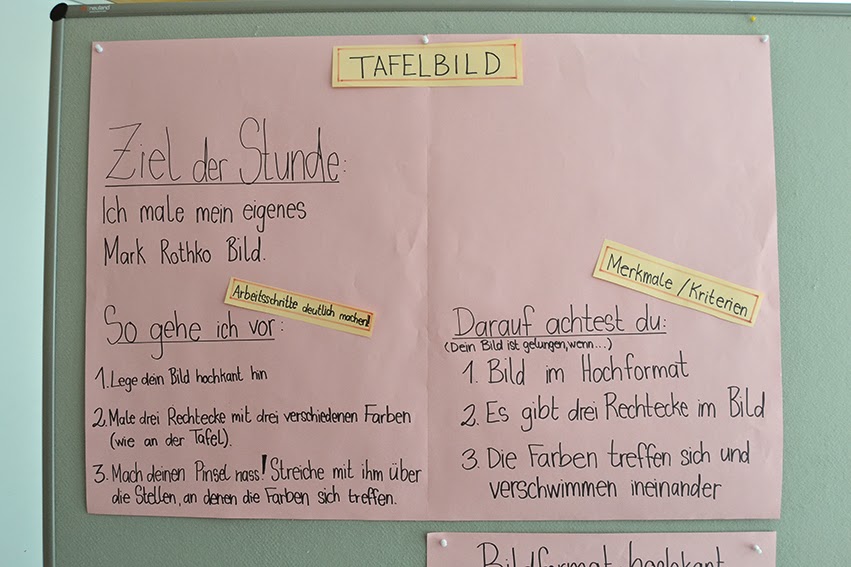 neuland
TAFELBILD
Ziel der Stunde:
Ich male mein eigenes
Mark Rothko Bild.
Arbeitsschritte deutlich machen!
So gehe ich vor:
1. Lege dein Bild hochkant hin
2. Male drei Rechtecke mit drei verschiedenen Farben
(wie an der Tafel).
3. Mach deinen Pinsel nass! Streiche mit ihm über
die Stellen, an denen die Farben sich treffen.
Merkmale/Kriterien
Darauf achtest du:
(Dein Bild ist gelungen, wenn...)
1. Bild im Hochformat
2. Es gibt drei Rechtecke im Bild
3. Die Farben treffen sich und
verschwimmen ineinander
Bildformat hochkant